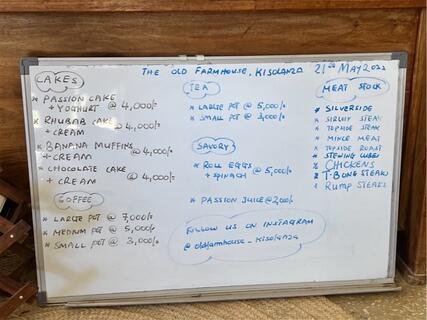 THE OLD FARMHOUSE, KISOLANZA
21st MAY 2022
CAKES
* PASSION CAKE
+ YOGHURT @ 4,000/=
* RHUBAB CAKE
+ CREAM @ 4,000/=
* BANANA MUFFINS
+ CREAM @ 4,000/=
* CHOCOLATE CAKE
+ CREAM @ 4,000/=
COFFEE
* LARGE POT @ 7,000/=
* MEDIUM POT @ 5,000/=
* SMALL POT @ 3,000/=
TEA
* LARGE POT @ 5,000/=
* SMALL POT @ 3,000/=
SAVORY
* ROLL EGGS
+ SPINACH @ 5,000/=
* PASSION JUICE @ 2,000/=
FOLLOW US ON INSTAGRAM
@ oldfarmhouse_kisolanza
MEAT STOCK
* SILVERSIDE
* SIRLOIN STEAK
* TOPSIDE STEAK
* MINCE MEAT
* TOPSIDE ROAST
* STEWING CUBES
* CHICKENS
* T-BONE STEAKS
* RUMP STEAKS